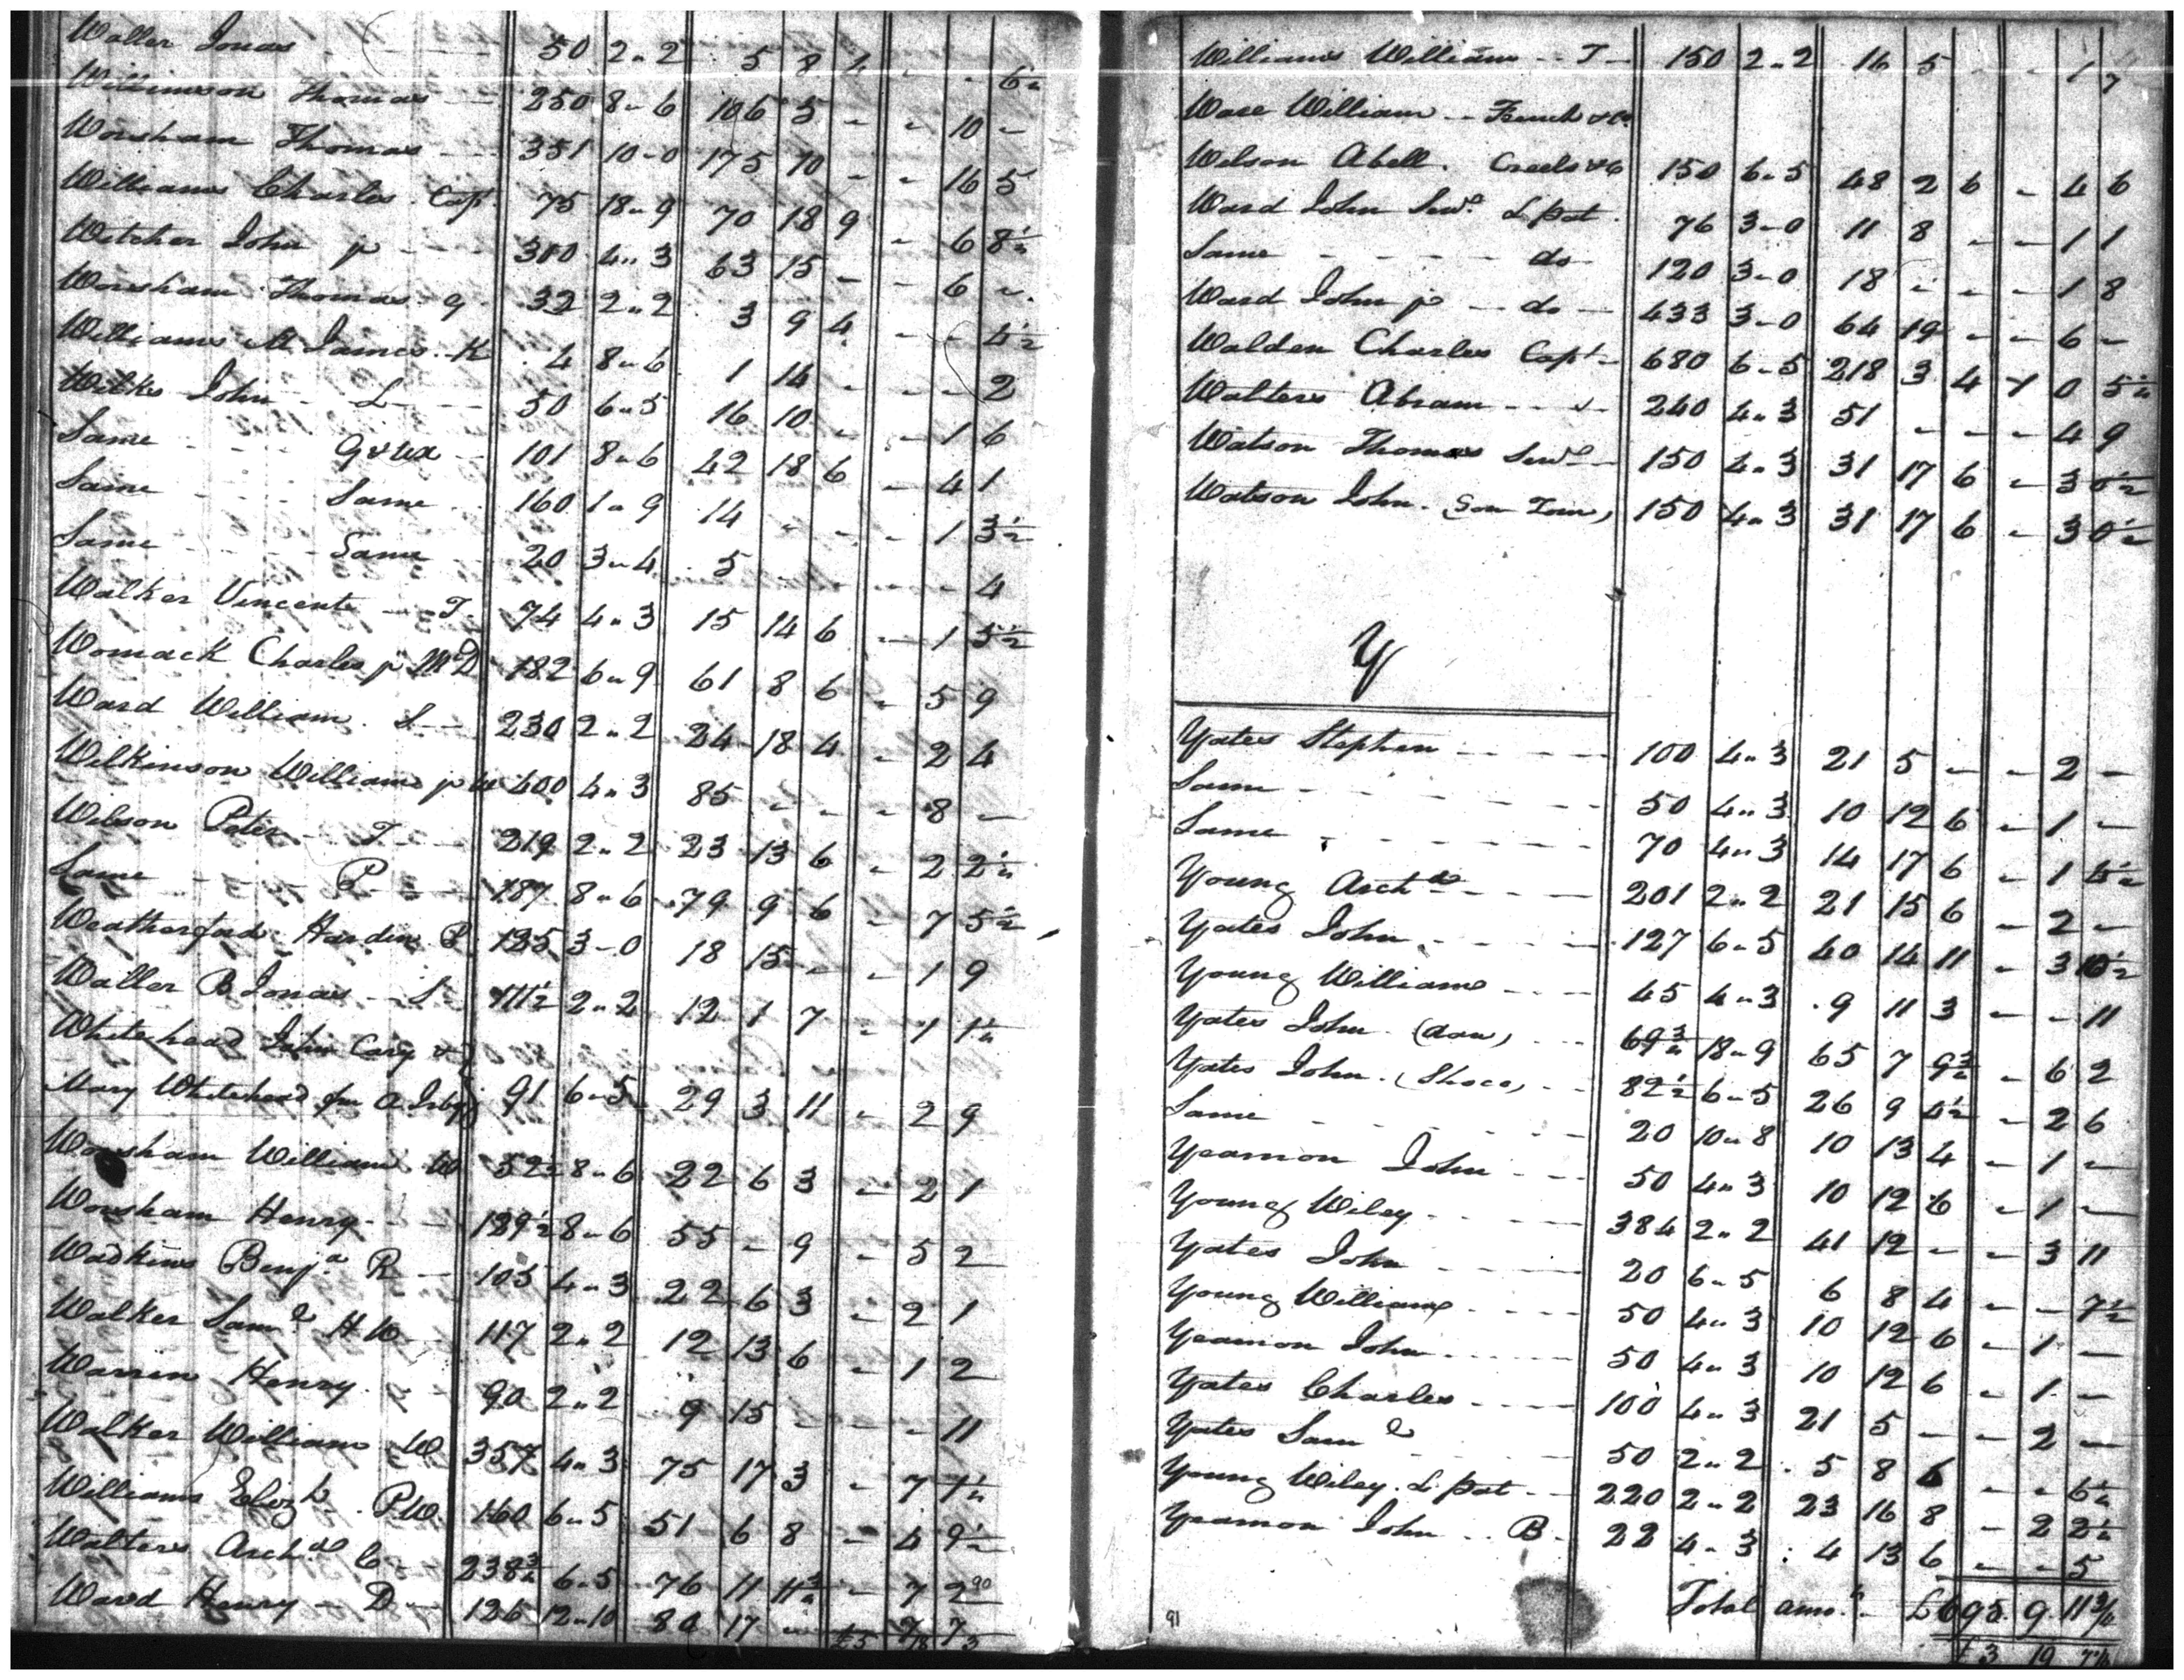 Waller Jonas 50 2 " 2 5 8 4 - - 6½
Williamson Thomas 250 8 " 6 106 5 - - 10 -
Worsham Thomas 351 10 - 0 175 10 - - 16 5
Williams Charles Capt. 75 18 " 9 70 18 9 - 6 8½
Witcher John jr 300 4 " 3 63 15 - - 6 -
Worsham Thomas G 32 2 " 2 3 9 4 - - 4½
Williams M James K 4 8 " 6 1 14 - - - 2
Wilks John L 50 6 " 5 16 10 - - 1 6
Same 101 8 " 6 42 18 6 - 4 1
Same Same 160 1 " 9 14 - - - 1 3½
Same Same 20 3 " 4 5 - - - 4
Walker Vincent T. 74 4 " 3 15 14 6 - 1 5½
Womack Charles jr McD 182 6 " 9 61 8 6 - 5 9
Ward William S 230 2 " 2 24 18 4 - 2 4
Wilkinson William jr W 400 4 " 3 85 - - - 8 -
Wilson Peter T 219 2 " 2 23 13 6 - 2 2½
Same P 187 8 " 6 79 9 6 - 7 5½
Weatherford Harden B 125 3 - 0 18 15 - - 1 9
Waller B Jonas S 111½ 2 " 2 12 1 7 - 1 1½
Whitehead John Cary &
Mary Whitehead fm 91 6 " 5 29 3 11 - 2 9
Worsham William W 52½ 8 " 6 22 6 3 - 2 1
Worsham Henry 129½ 8 " 6 55 - 9 - 5 2
Wadkins Benja R 105 4 " 3 22 6 3 - 2 1
Walker Saml H W 117 2 " 2 12 13 6 - 1 2
Warrin Henry 90 2 " 2 9 15 - - - 11
Walker William W 357 4 " 3 75 17 3 - 7 1½
Williams Elizh P.W. 160 6 " 5 51 6 8 - 4 9½
Walters Archd C 238¾ 6 " 5 76 11 11¾ - 7 2
Ward Henry D 126 12 " 10 80 17 - 7 7
Williams William T 150 2 " 2 16 5 - - 1 7
Ware William French & Co
Wilson Abell. Creels & C 150 6 " 5 48 2 6 - 4 6
Ward John Senr L pat. 76 3 - 0 11 8 - - 1 1
Same do 120 3 - 0 18 - - - 1 8
Ward John jr do 433 3 - 0 64 19 - - 6 -
Walden Charles Capt 680 6 - 5 218 3 4 1 0 5½
Walters Abram 240 4 " 3 51 - - - 4 9
Watson Thomas Senr 150 4 " 3 31 17 6 - 3 0½
Watson John. (Son Tom) 150 4 " 3 31 17 6 - 3 0½
Y
Yates Stephen 100 4 " 3 21 5 - - 2 -
Same 50 4 " 3 10 12 6 - 1 -
Same 70 4 " 3 14 17 6 - 1 4½
Young Archd 201 2 " 2 21 15 6 - 2 -
Yates John 127 6 - 5 40 14 11 - 3 10½
Young William 45 4 " 3 9 11 3 - - 11
Yates John (Dan) 69¾ 18 " 9 65 7 9¾ - 6 2
Yates John. (Shoco) 82½ 6 " 5 26 9 4½ - 2 6
Same 20 10 " 8 10 13 4 - 1 -
Yeamon John 50 4 " 3 10 12 6 - 1 -
Young Wiley 384 2 " 2 41 12 - - 3 11
Yates John 20 6 - 5 6 8 4 - - 7½
Young William 50 4 " 3 10 12 6 - 1 -
Yeamon John 50 4 " 3 10 12 6 - 1 -
Yates Charles 100 4 " 3 21 5 - - 2 -
Yates Saml 50 2 " 2 5 8 6 - - 6½
Young Wiley. L pat 220 2 " 2 23 16 8 - 2 2½
Yeamon John B 22 4 " 3 4 13 6 - - 5
Total amot £695. 9. 11¾
91